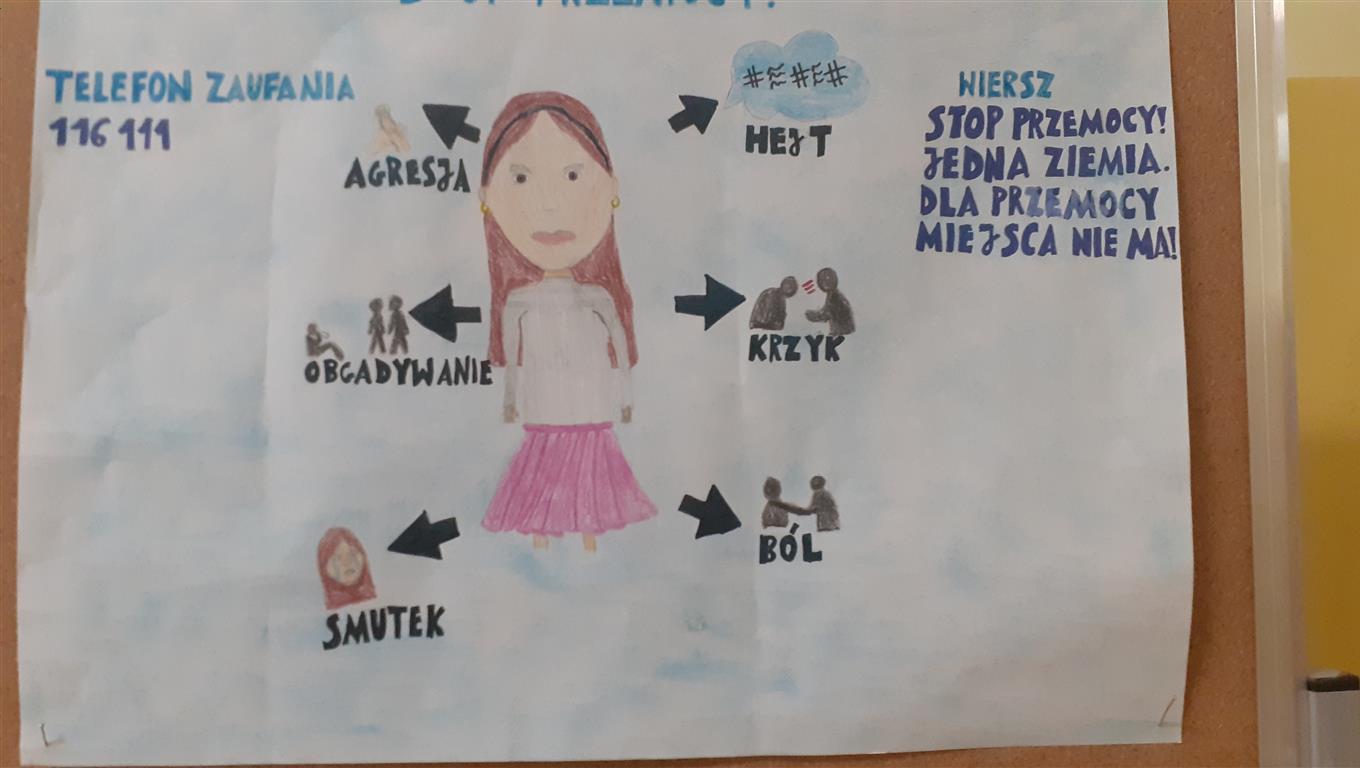 TELEFON ZAUFANIA
116 111
AGRESJA
HEJT
#≈#≈#
OBGADYWANIE
KRZYK
SMUTEK
BÓL
WIERSZ
STOP PRZEMOCY!
JEDNA ZIEMIA.
DLA PRZEMOCY
MIEJSCA NIE MA!